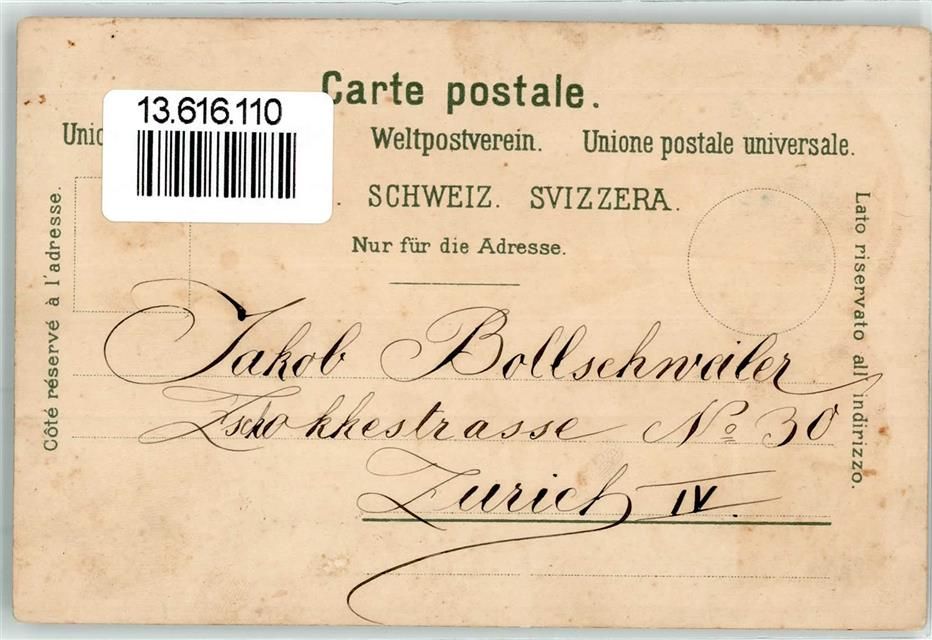 Carte postale.
13.616.110
Weltpostverein. Unione postale universale.
SCHWEIZ. SVIZZERA.
Nur für die Adresse.
Côté réservé à l'adresse.
Lato riservato all'indirizzo.
Jakob Bollschweiler
Zschokkhestrasse No 30
Zurich IV.